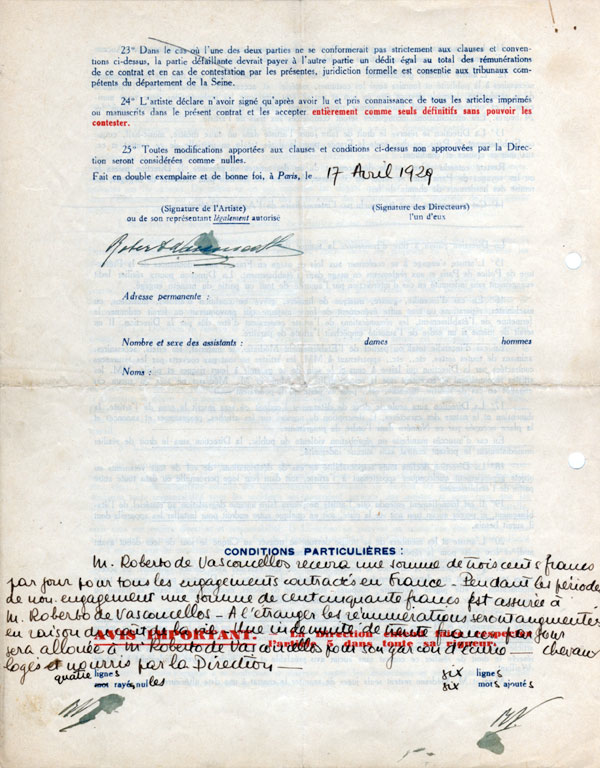 23° Dans le cas où l'une des deux parties ne se conformerait pas strictement aux clauses et conven-
tions ci-dessus, la partie défaillante devrait payer à l'autre partie un dédit égal au total des rémunérations
de ce contrat et en cas de contestation par les présentes, juridiction formelle est consentie aux tribunaux com-
pétents du département de la Seine.
24° L'artiste déclare n'avoir signé qu'après avoir lu et pris connaissance de tous les articles imprimés
ou manuscrits dans le présent contrat et les accepter entièrement comme seuls définitifs sans pouvoir les
contester.
25° Toutes modifications apportées aux clauses et conditions ci-dessus non approuvées par la Direc-
tion seront considérées comme nulles.
Fait en double exemplaire et de bonne foi, à Paris, le 17 Avril 1929
(Signature de l'Artiste)
ou de son représentant légalement autorisé
(Signature des Directeurs)
l'un d'eux
Adresse permanente :
Nombre et sexe des assistants : dames hommes
Noms :
CONDITIONS PARTICULIÈRES :
M. Roberto de Vasconcellos recevra une somme de trois cents francs
par jour pour tous les engagements contractés en France - Pendant les périodes
de non-engagement une somme de cent cinquante francs est assurée à
M. Roberto de Vasconcellos - A l'étranger les rémunérations seront augmentées
en raison du coût de la vie. Une indemnité de trente francs par jour
AVIS IMPORTANT. La Direction
sera allouée à M. Roberto de Vasconcellos pour son garçon d'écurie — chevaux
l'article 5 dans toute sa rigueur.
logés et nourris par la Direction —
quatre lignes
mot rayés nulles
six lignes
six mots ajoutés